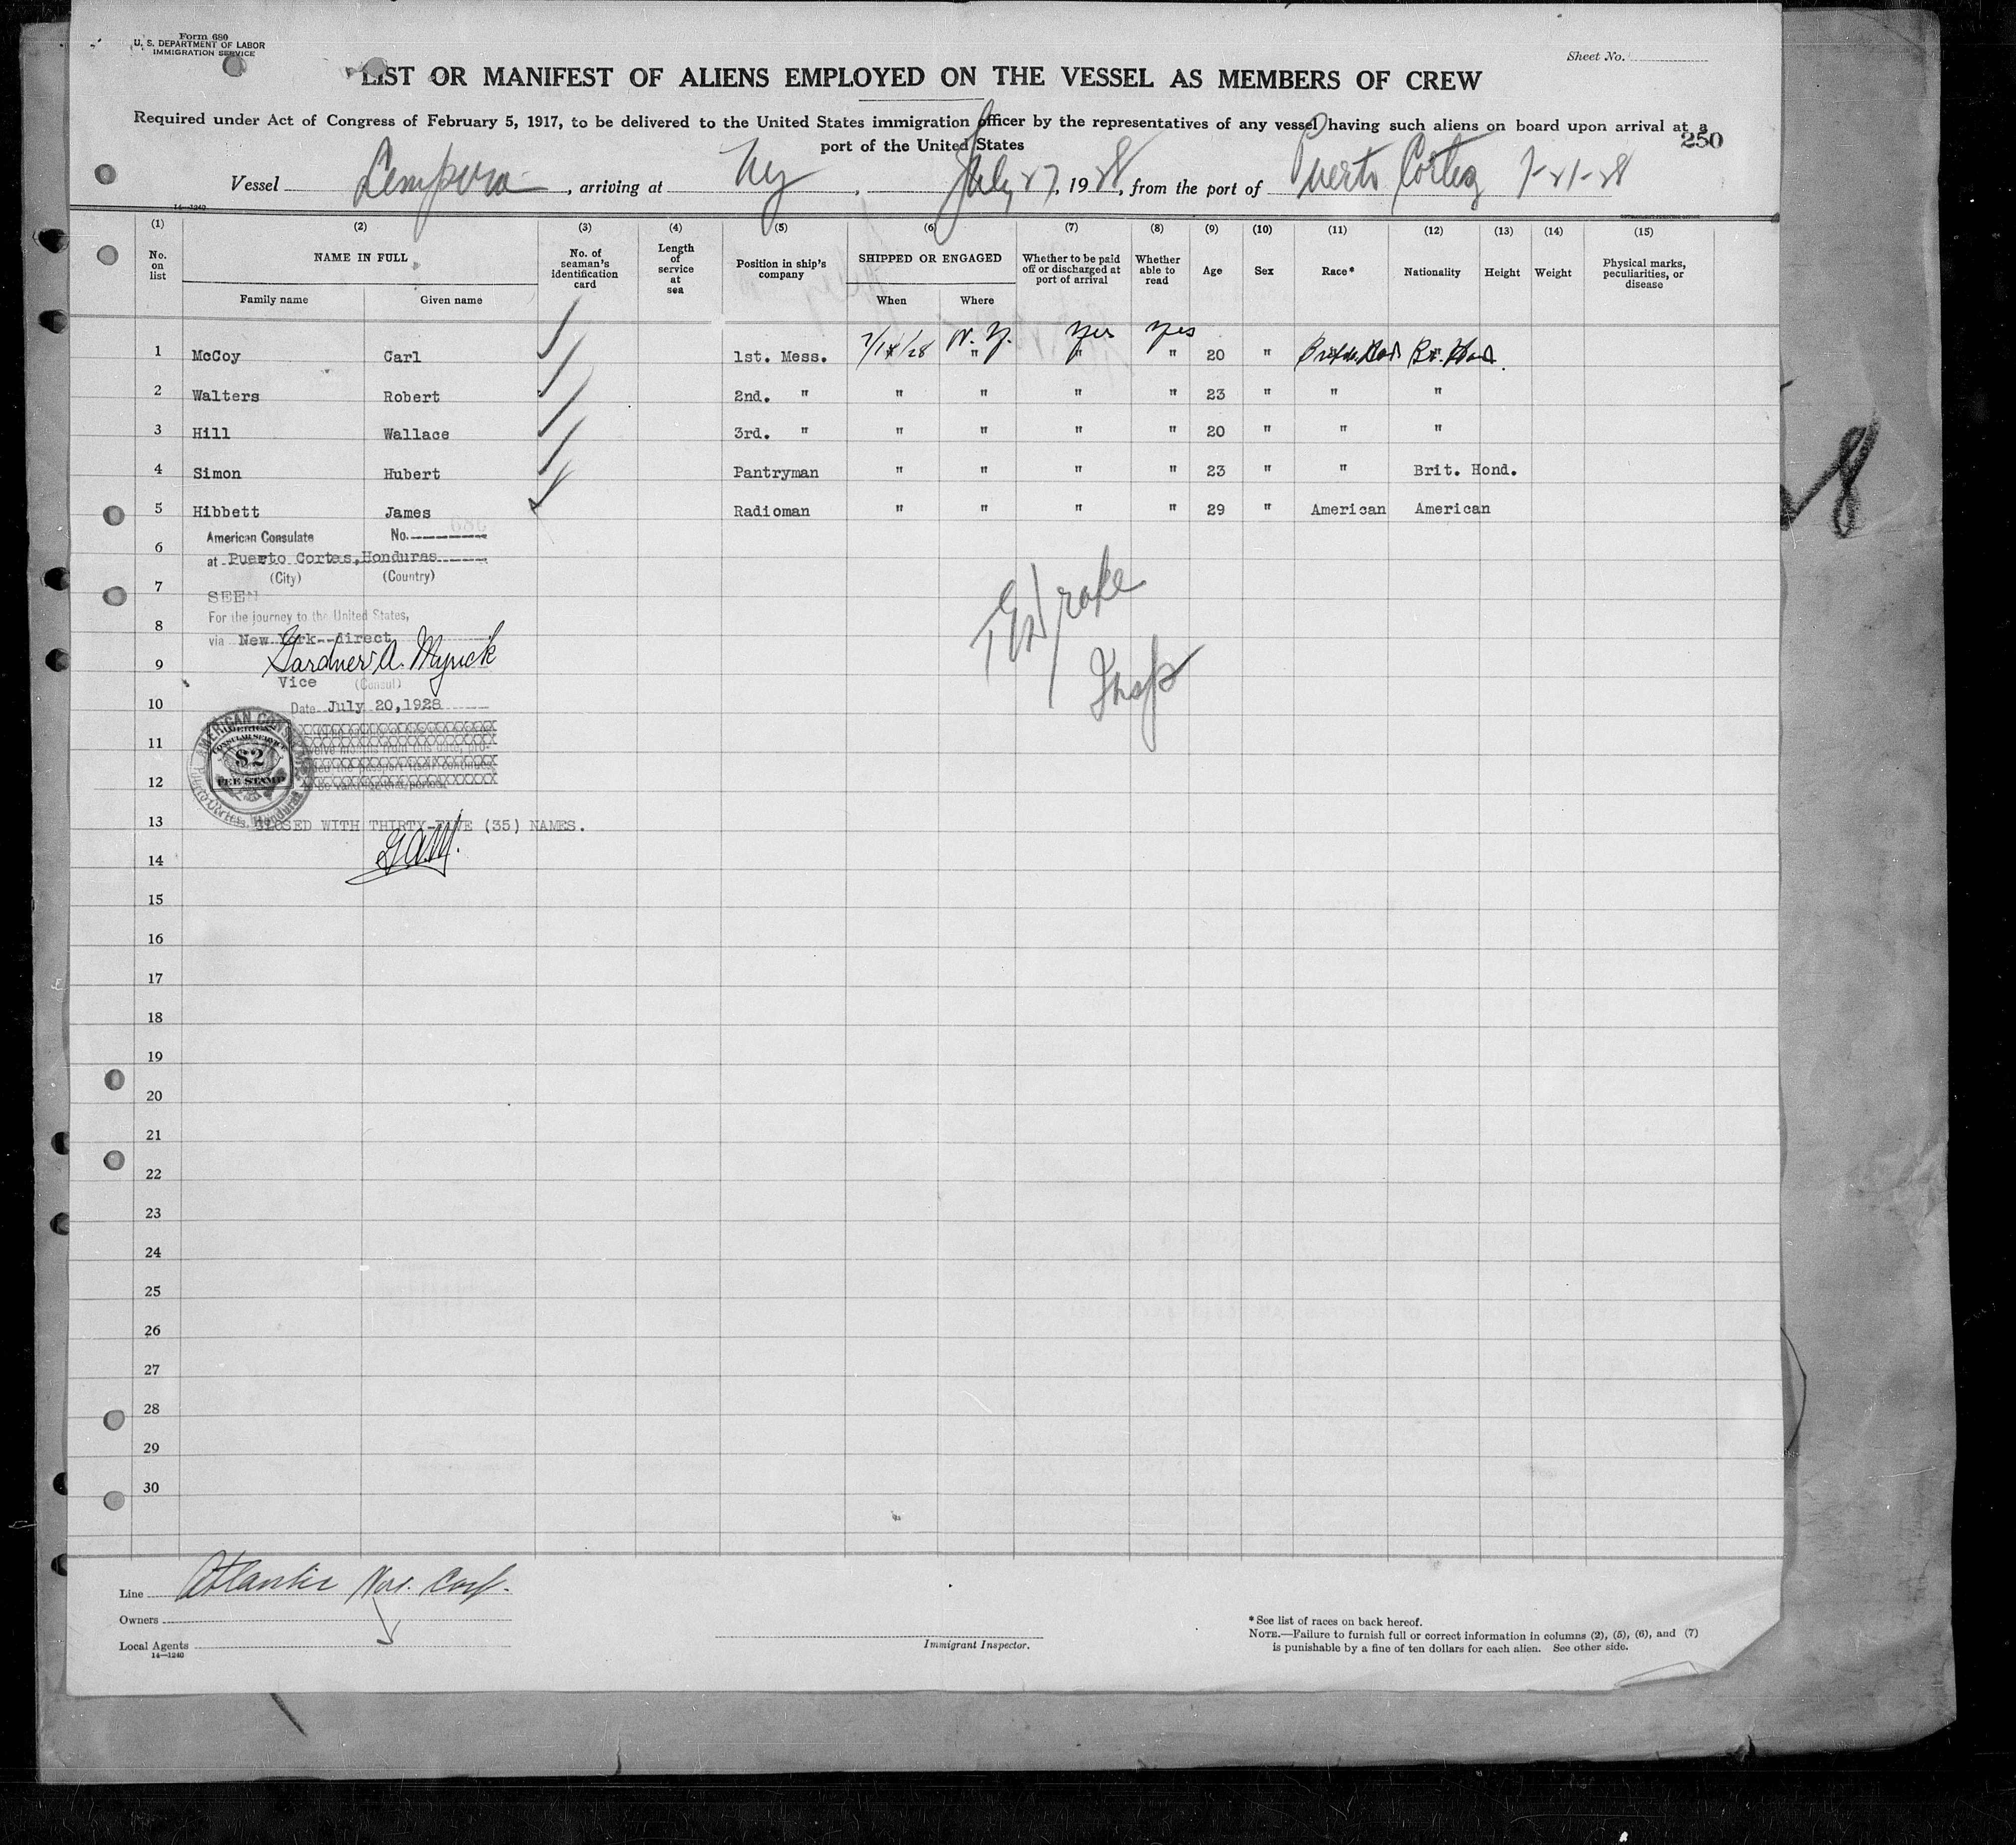 Form 680
U. S. DEPARTMENT OF LABOR
IMMIGRATION SERVICE
Sheet No.
LIST OR MANIFEST OF ALIENS EMPLOYED ON THE VESSEL AS MEMBERS OF CREW
Required under Act of Congress of February 5, 1917, to be delivered to the United States immigration officer by the representatives of any vessel having such aliens on board upon arrival at a
port of the United States
250
Vessel Lempira, arriving at Ny, July 27, 1928, from the port of Puerto Cortez 7-21-28
14—1240
(1) (2) (3) (4) (5) (6) (7) (8) (9) (10) (11) (12) (13) (14) (15)
No. on list NAME IN FULL No. of seaman's identification card Length of service at sea Position in ship's company SHIPPED OR ENGAGED Whether to be paid off or discharged at port of arrival Whether able to read Age Sex Race* Nationality Height Weight Physical marks, peculiarities, or disease
Family name Given name When Where
N. Y. Yes Yes
1 McCoy Carl 1st. Mess. " " " 20 " Br. Hond.
2 Walters Robert 2nd. " " " " " 23 " " "
3 Hill Wallace 3rd. " " " " " 20 " " "
4 Simon Hubert Pantryman " " " " 23 " " Brit. Hond.
5 Hibbett James Radioman " " " " 29 " American American
American Consulate No.
6
at Puerto Cortes, Honduras
(City) (Country)
7
SEEN
For the journey to the United States,
8
via New York--direct
9 Gardner A. Myrick
Vice (Consul)
10
Date July 20, 1928
Drake
Insp
AMERICAN CONSULAR SERVICE
$2
FEE STAMP
Puerto Cortes, Honduras
11
12
13 CLOSED WITH THIRTY-FIVE (35) NAMES.
G.A.M.
14
15
16
17
18
19
20
21
22
23
24
25
26
27
28
29
30
Line Atlantic Nav. Corp.
Owners
Local Agents
14—1240
Immigrant Inspector.
* See list of races on back hereof.
NOTE.—Failure to furnish full or correct information in columns (2), (5), (6), and (7)
is punishable by a fine of ten dollars for each alien. See other side.
8